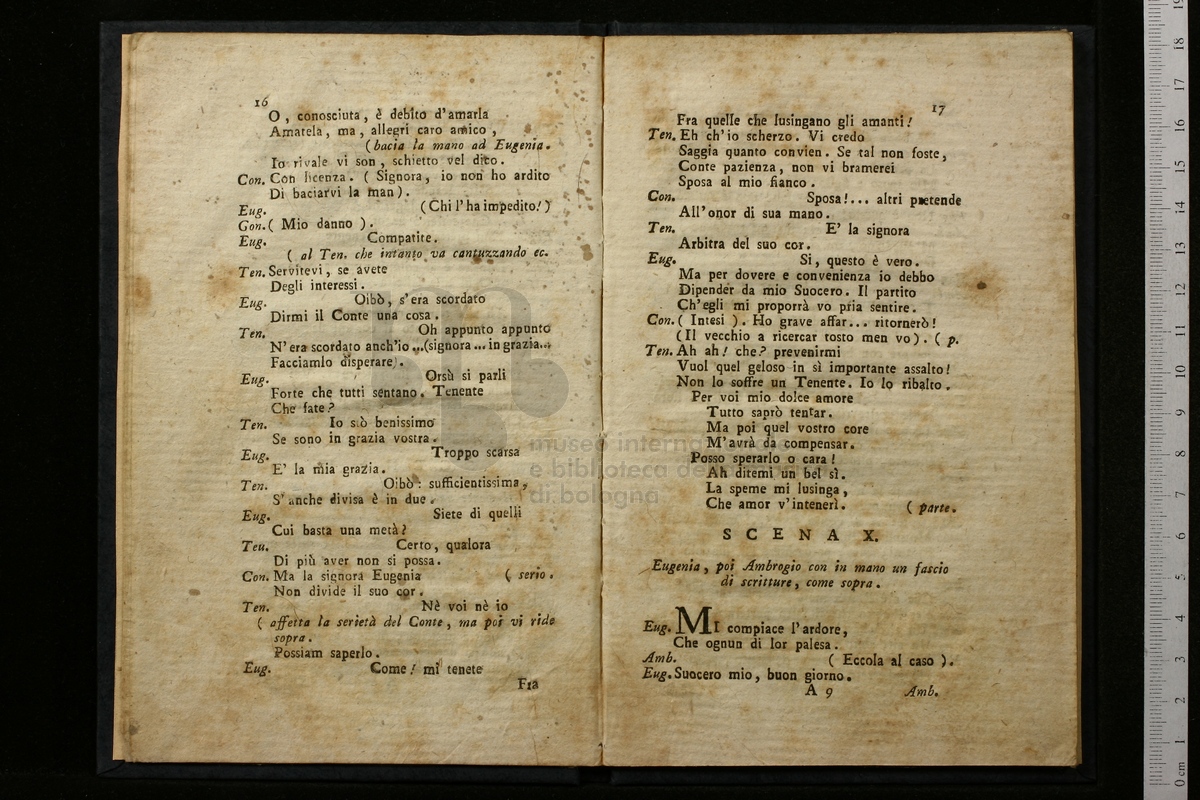 16
O, conosciuta, è debito d'amarla
Amatela, ma, allegri caro amico,
(bacia la mano ad Eugenia.
Io rivale vi son, schietto vel dico.
Con. Con licenza. (Signora, io non ho ardito
Di baciarvi la man).
Eug. (Chi l'ha impedito!)
Gon. (Mio danno).
Eug. Compatite.
(al Ten. che intanto va cantuzzando ec.
Ten. Servitevi, se avete
Degli interessi.
Eug. Oibò, s'era scordato
Dirmi il Conte una cosa.
Ten. Oh appunto appunto
N'era scordato anch'io ...(signora ... in grazia...
Facciamlo disperare).
Eug. Orsù si parli
Forte che tutti sentano. Tenente
Che fate?
Ten. Io stò benissimo
Se sono in grazia vostra.
Eug. Troppo scarsa
E' la mia grazia.
Ten. Oibò: sufficientissima,
S'anche divisa è in due.
Eug. Siete di quelli
Cui basta una metà?
Teu. Certo, qualora
Di più aver non si possa.
Con. Ma la signora Eugenia (serio.
Non divide il suo cor.
Ten. Nè voi nè io
(affetta la serietà del Conte, ma poi vi ride
sopra.
Possiam saperlo.
Eug. Come! mi tenete
Fra
17
Fra quelle che lusingano gli amanti!
Ten. Eh ch'io scherzo. Vi credo
Saggia quanto convien. Se tal non foste,
Conte pazienza, non vi bramerei
Sposa al mio fianco.
Con. Sposa!... altri pretende
All'onor di sua mano.
Ten. E' la signora
Arbitra del suo cor.
Eug. Si, questo è vero.
Ma per dovere e convenienza io debbo
Dipender da mio Suocero. Il partito
Ch'egli mi proporrà vo pria sentire.
Con. (Intesi). Ho grave affar... ritornerò!
(Il vecchio a ricercar tosto men vo). (p.
Ten. Ah ah! che? prevenirmi
Vuol quel geloso in sì importante assalto!
Non lo soffre un Tenente. Io lo ribalto.
Per voi mio dolce amore
Tutto saprò tentar.
Ma poi quel vostro core
M'avrà da compensar.
Posso sperarlo o cara!
Ah ditemi un bel sì.
La speme mi lusinga,
Che amor v'intenerì. (parte.
SCENA X.
Eugenia, poi Ambrogio con in mano un fascio
di scritture, come sopra.
Eug. MI compiace l'ardore,
Che ognun di lor palesa.
Amb. (Eccola al caso).
Eug. Suocero mio, buon giorno.
A 9 Amb.
museo interna
e biblioteca de
di bologna
0 cm 1 2 3 4 5 6 7 8 9 10 11 12 13 14 15 16 17 18 19